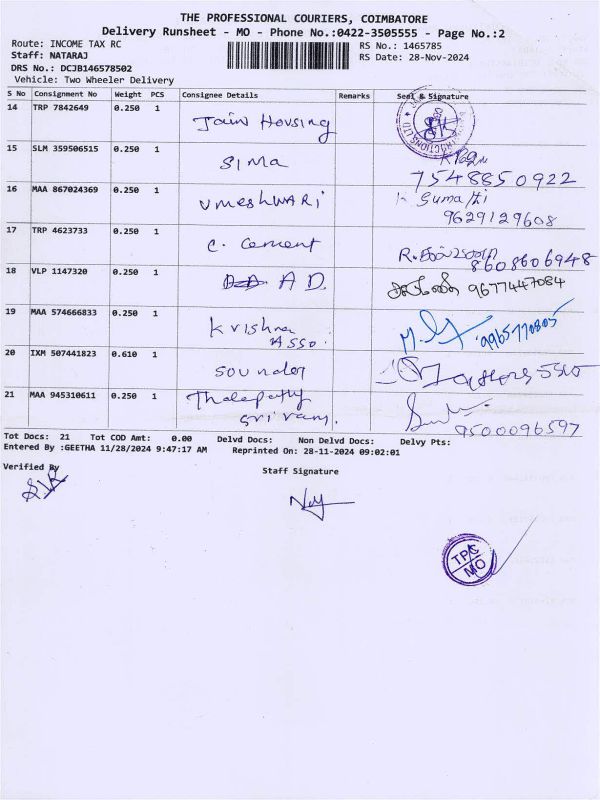 THE PROFESSIONAL COURIERS, COIMBATORE
Delivery Runsheet - MO - Phone No.:0422-3505555 - Page No.:2
Route: INCOME TAX RC
RS No.: 1465785
Staff: NATARAJ
RS Date: 28-Nov-2024
DRS No.: DCJB146578502
Vehicle: Two Wheeler Delivery
S No Consignment No Weight PCS Consignee Details Remarks Seal & Signature
14 TRP 7842649 0.250 1 Jain Housing
15 SLM 359506515 0.250 1 Sima 7548850922
16 MAA 867024369 0.250 1 UmeshWARi
9629129608
17 TRP 4623733 0.250 1 C. Cement
8608606948
18 VLP 1147320 0.250 1 A D. 9677447084
19 MAA 574666833 0.250 1 Krishna
ASSO. 9965770805
20 IXM 507441823 0.610 1 Soundar
21 MAA 945310611 0.250 1 Thalapathy
Sri ram. 9500096597
Tot Docs: 21 Tot COD Amt: 0.00 Delvd Docs: Non Delvd Docs: Delvy Pts:
Entered By :GEETHA 11/28/2024 9:47:17 AM Reprinted On: 28-11-2024 09:02:01
Verified By
Staff Signature
TPC
MO